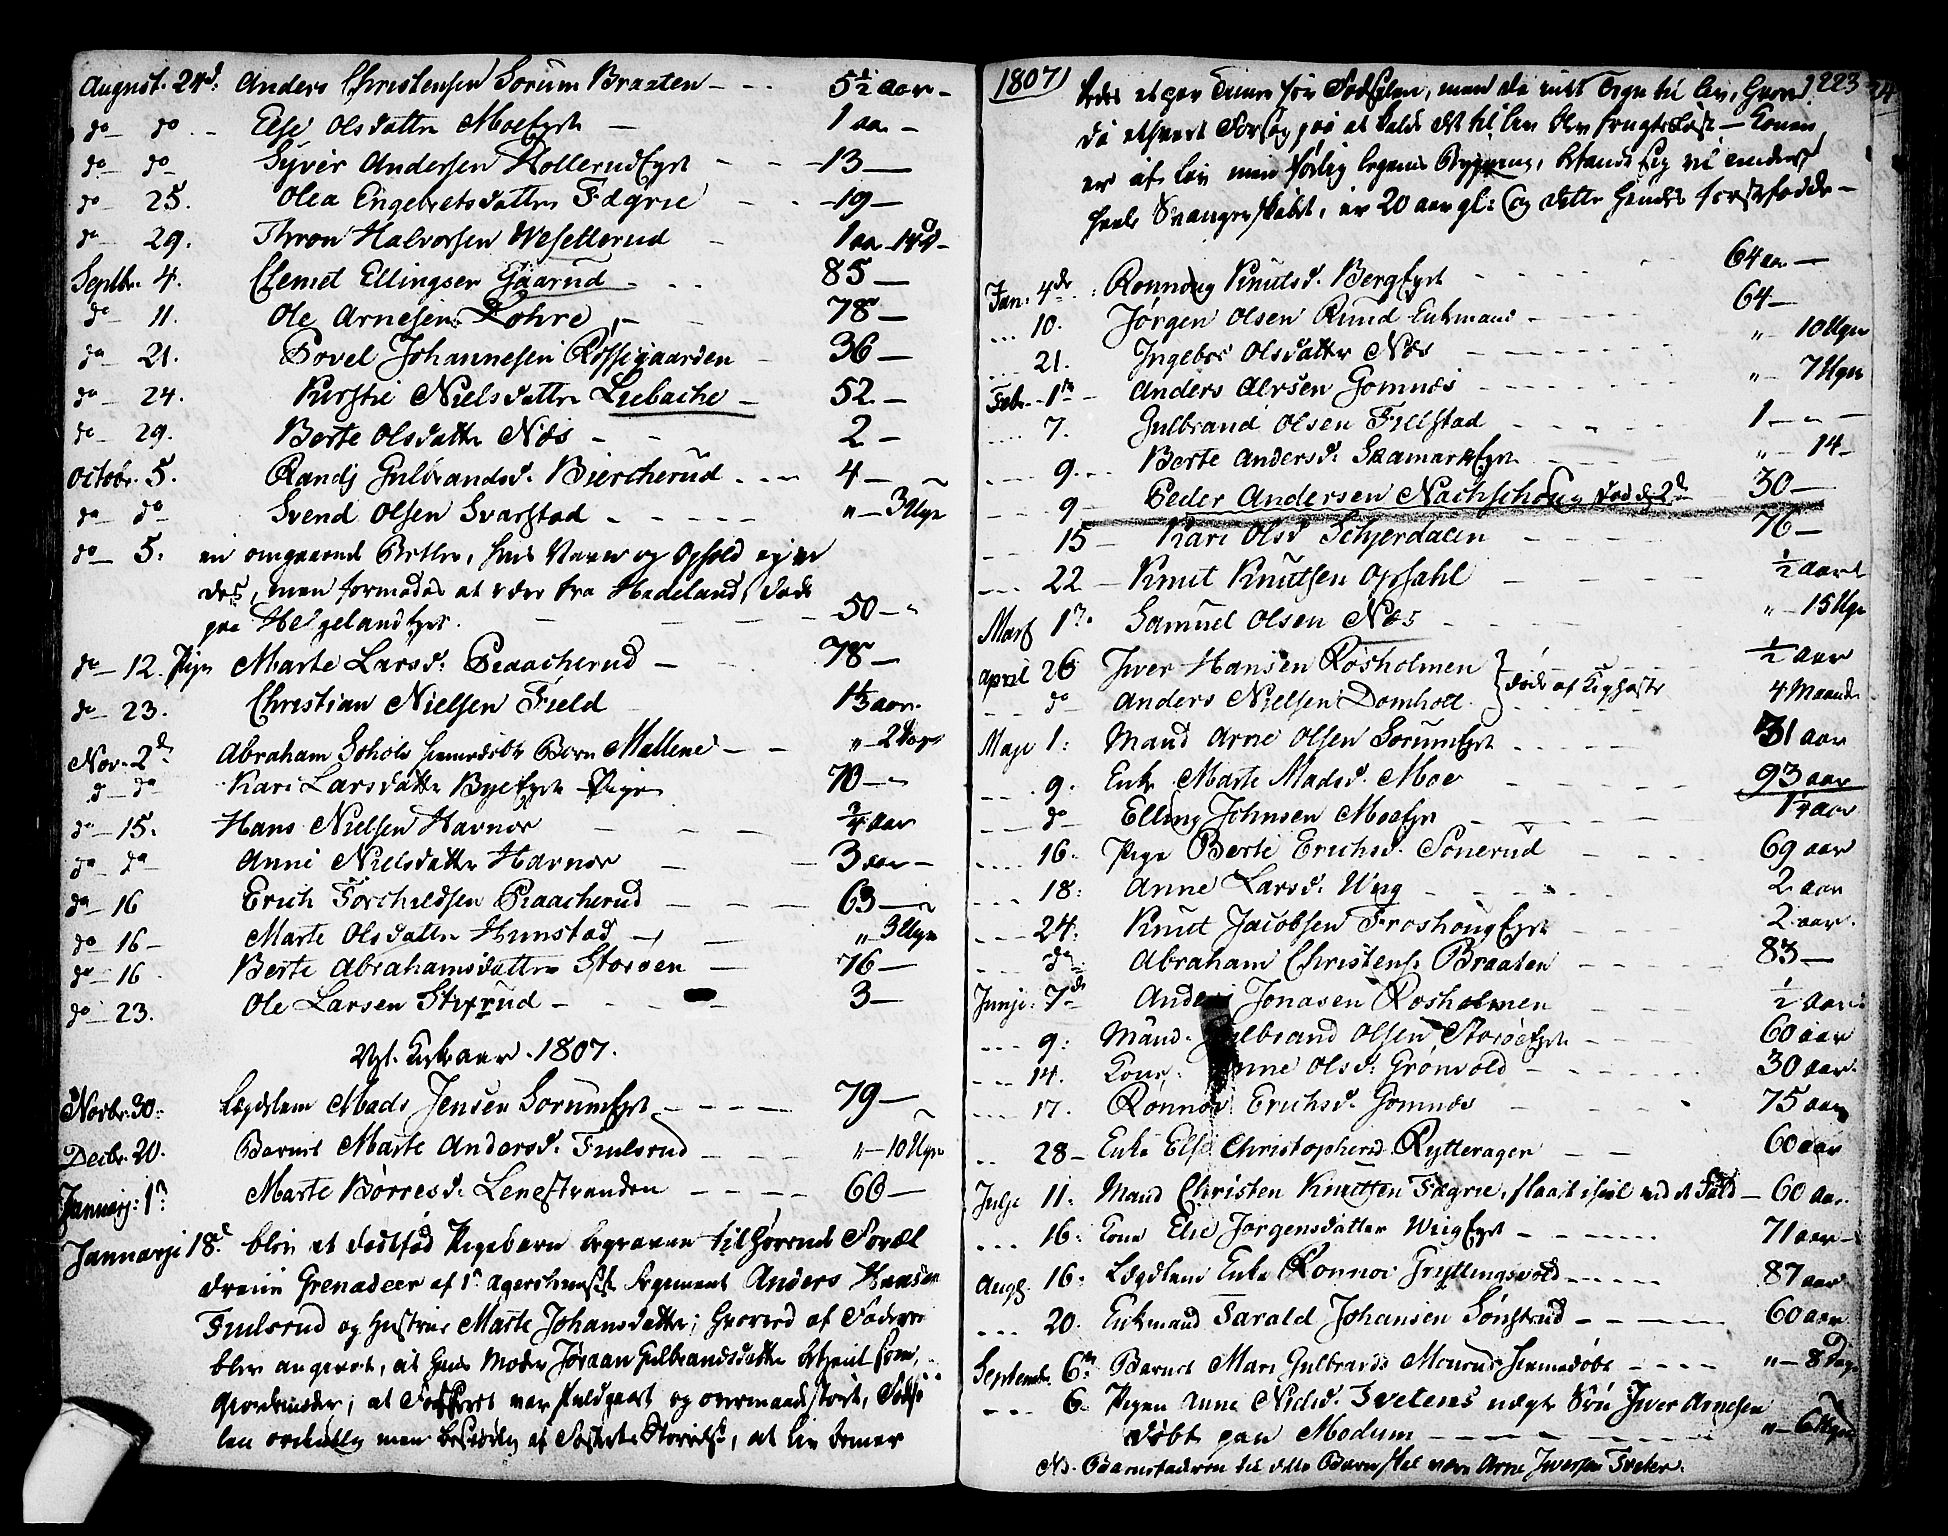 August. 24d. Anders Christensen Sorum Braaten - - - 5½ aar -
do - do - Else Olsdatter Moe Eyet - 1 aar -
do - do - Syver Andersen Hollerud Eyet - - - 13 -
do - 25. Olea Engebretsdatter Fægrie - - - 19 -
do - 29. Thron Halvorsen Weselterud - 1 aar 14 d -
Septbr. 4. Clemet Ellingsen Gaarud - - - 85 -
do - 11. Ole Arnesen Lohre - - 78 -
do - 21. Povel Johannesen Røssegaarden - 36 -
do - 24. Kirstie Nielsdatter Liebache - 52 -
do - 29. Berte Olsdatter Næs - - - 2 -
Octobr. 5. Randj Gulbrandsd. Biercherud - - - 4 -
do - do - Svend Olsen Svarstad - - - - " - 3 Uger
do - 5. en omgaaende Betler, hvis Navn og Ophold ej ve
des, men formodes at være fra Hadeland, døde
paa Helgelandeyet. - - - 50 - "
do - 12. Pige Marte Larsd. Braacherud - - 78 -
do - 23. Christian Nielsen Field 1½ aar.
Nov. 2d. Abraham hiemedøbt Barn Mællene - - " - 2 Dage
d - do - Kari Larsdatter Bye Eyet Pige 70 - "
do - 15. Hans Nielsen Havnor - - ¾ aar
do - do - Anne Nielsdatter Havnor - - 3 aar -
do - 16 Erich Torchildsen Braacherud - - - 63 -
do - 16 - Marte Olsdatter Hunstad - - " - 3 Uger
do - 16 Berte Abrahamsdatter Storøen - 76 -
do - 23. Ole Larsen Stixrud - - - 3 -
Kirkeaar 1807.
Novbr. 30. Lægdslem Mads Jensen Sorum Eyet - - - - 79 -
Decbr. 20. Barnet Marte Andersd. Fiulsrud - - - " - 10 Uger
Januarj. 1. Marte Børresd. Lenestranden - - - - 66 -
Januarji 18d. blev et dødfød Pigebarn begraven tilhørende
Grenadeer af 1. agershusiske Regiment Anders Hansen
Fiulsrud og Hustrue Marte Johansdatter; hvorved af Faderen
blev angivet, at hans Moder Jøraan Gulbrandsdatter betient som
Giordemoder, at Fosteret var fuldgaaet og overmaade stort, Fødse
len ordentlig men besværlig af Fosterets Størrelse, at Liv
1807 223
et par Timer før Fødselen, men da intet Tegn til Liv, hvor
da ethvert Forsøg paa at kalde det til Liv blev frugtesløst - Konen
er af lav men førlig Legems Bygning, befandt sig vel under
heele Svangerskabet, er 20 aar gl: og dette hendes førstefødde -
Jan. 4de Rønnoug Knutsd. Berg Eyet - - - - 64 aar -
- - - 10. Jørgen Olsen Rund Enkmand - - - - 64 -
- - - 21. Ingebor Olsdatter Næs - - - - " - 10 Uger
Febr. 1te - Anders Alvsen Gomnæs - - - - " - 7 Uger
- - - 7. Gulbrand Olsen Fillstad - - - - 1 - -
- - - 9. - Berte Andersd. Skamark Eyet - - - " - 14 -
- - - 9 - Peder Andersen Nachschoug død d. 2d 30 -
- - - 15 - Kari Olsd Schjerdalen - - - 76 -
- - - 22 - Knut Knutsen Opsahl - - - ½ aar
Mart 1. Samuel Olsen Næs - - - - " - 15 Uger
April 26 Iver Hansen Rosholmen } døde af Kighoste ½ aar
- - do Anders Nielsen Domholt } 4 Maaneder
Maji 1: Mand Arne Olsen Sorum Eyet - - - - 31 aar
- - - 9. Enke Marte Madsd. Moe - - - - 93 aar
- - - do - Elling Johnsen Moe Eyet - - - - 1¼ aar
- - - 16. Pige Berte Erichsd. Sonerud - - - - 69 aar
- - - 18: Anne Larsd. Wiig - - - - 2 aar
- - - 24. Knut Jacobsen Froshoug Eyet - - - 2 aar.
- - - do. Abraham Christens. Braaten - - - - 83 -
Junji. 7de - Anders Jonasen Rosholmen ½ aar
- - - 9. Mand Gulbrand Olsen Storøe Eyet - - - 60 aar
- - - 14. Kone Anne Olsd. Grønvold - - - - 30 aar.
- - - 17. Rønnov Erichsd. Gomnæs - - - - 75 aar
- - 28 - Enke Else Christophersd. Rytterager - - 60 aar
Julji 11. Mand Christen Knutsen Fægrie, slaaet ihiel ved et Fald - 60 aar.
- - - 16. Kone Elie Jørgensdatter Wiig Eyet - - - - 71 aar -
Augs. 16. Lægdslem Enke Rønnov Gryttingsvold - - - - 87 aar
- - - 20. Enkmand Tarald Johansen Sonsterud - - - - 60 aar.
Septembr. 6te Barnet Mari Gulbrandsd hiemedøbt - - - - " - 8 Dage
- - - 6. Pigen Anne Nielsd. Tvetens uægte Søn Iver Arnesen
døbt paa Modum - - - - - - - " - 6 Uger
NB. Barnefaderen til dette Barn skal være Arne Iversen Tveten.